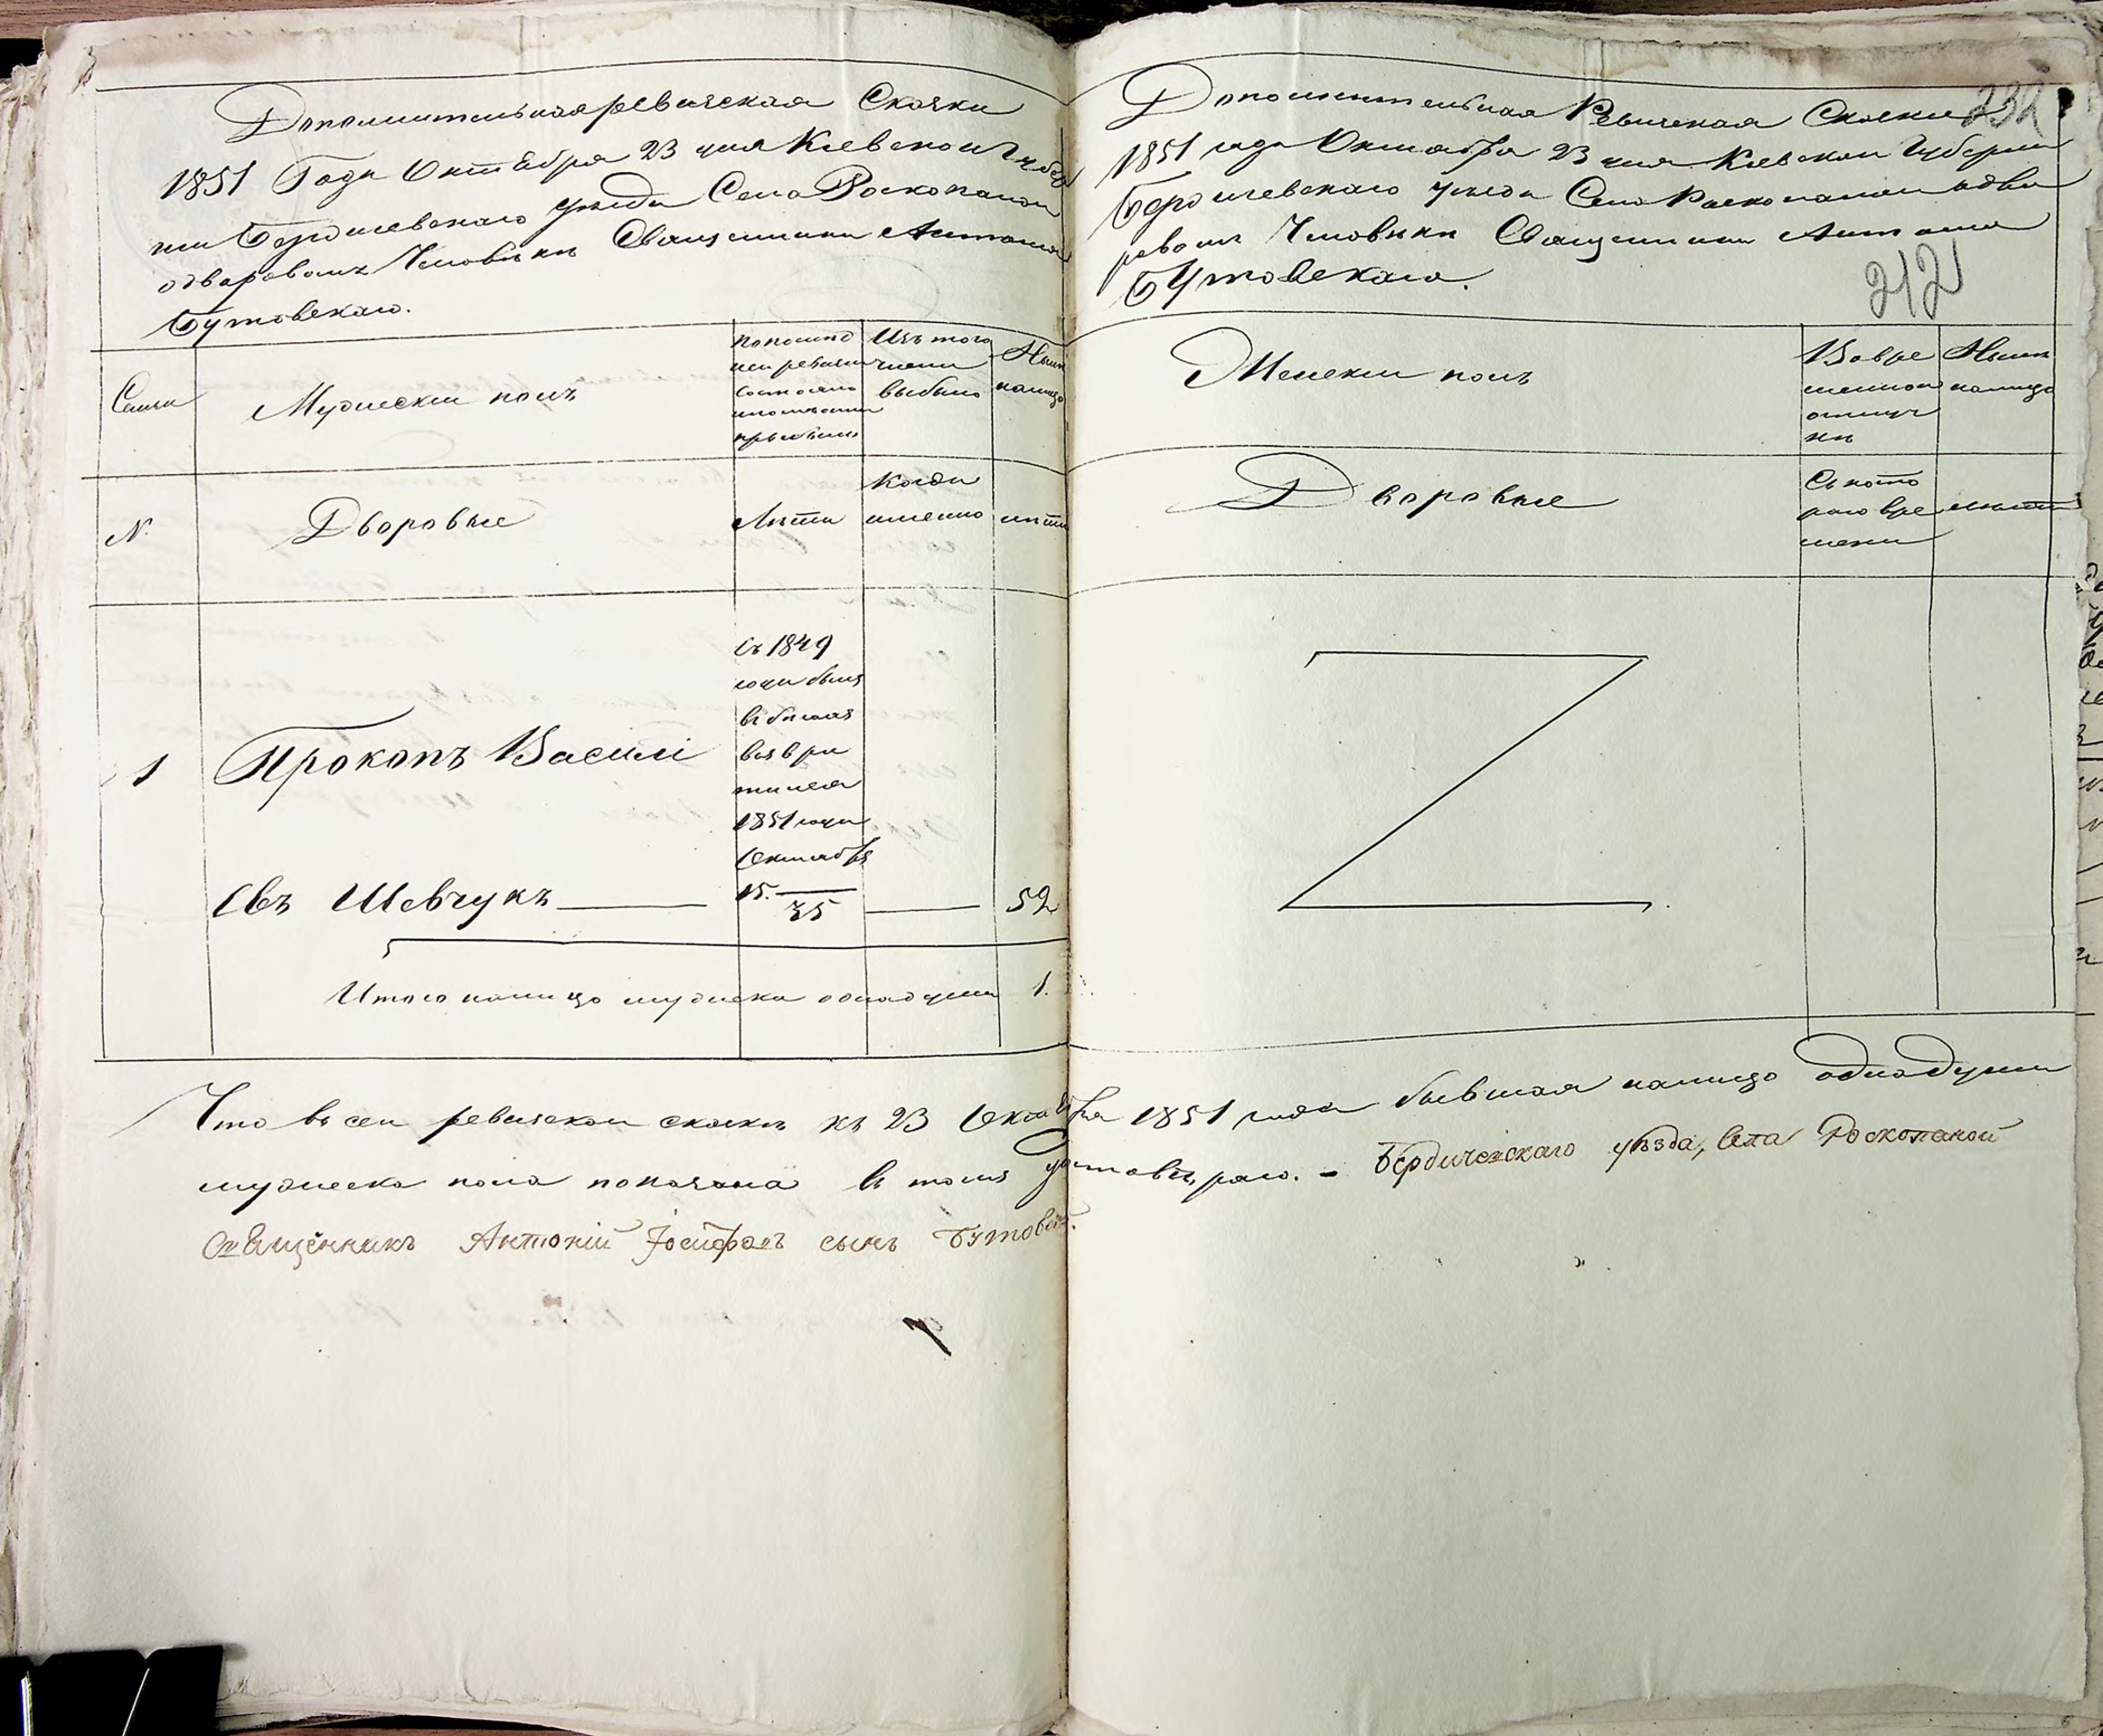 Дополнительная ревизская Сказка
1851 Года Октебря 23 дня Киевской Губер
нии Бердичевскаго уезда Села Роскопаной
одваровомъ Человѣкѣ Священника Антонія
Бутовскаго.
Семьи
Мужески полъ
По последней ревизіи состояло и после они прибыло
Изъ того числа выбыло
Нынѣ налицо
N.
Дворовые
Лѣта
Когда именно
лѣта
съ 1849
года былъ
въ бегахъ
возвра
тился
1851 года
Октября
15. 35
1
Прокопъ Василі
евъ Шевчукъ
52
Итого налицо мужеска однадуша 1.
Дополнительная Ревизская Сказка
232
1851 года Октября 23 дня Киевской Губерніи
Бердичевскаго уезда Села Раскопаной одво
ровомъ Человѣкѣ Священника Антонія
Бутовскаго.
212
Женски полъ
Вовре
менной
отлуч
кѣ
Нынѣ
налицо
Дворовые
Съ кото
раго вре
мени
лѣта
Что въ сей ревизской сказкѣ къ 23 Октября 1851 года бывшая налицо однадуша
мужеска пола показана въ томъ удостовѣряю. - Бердичевскаго уѣзда, Села Роскопаной
Священникъ Антоній Іосифовъ сынъ Бутовскій.